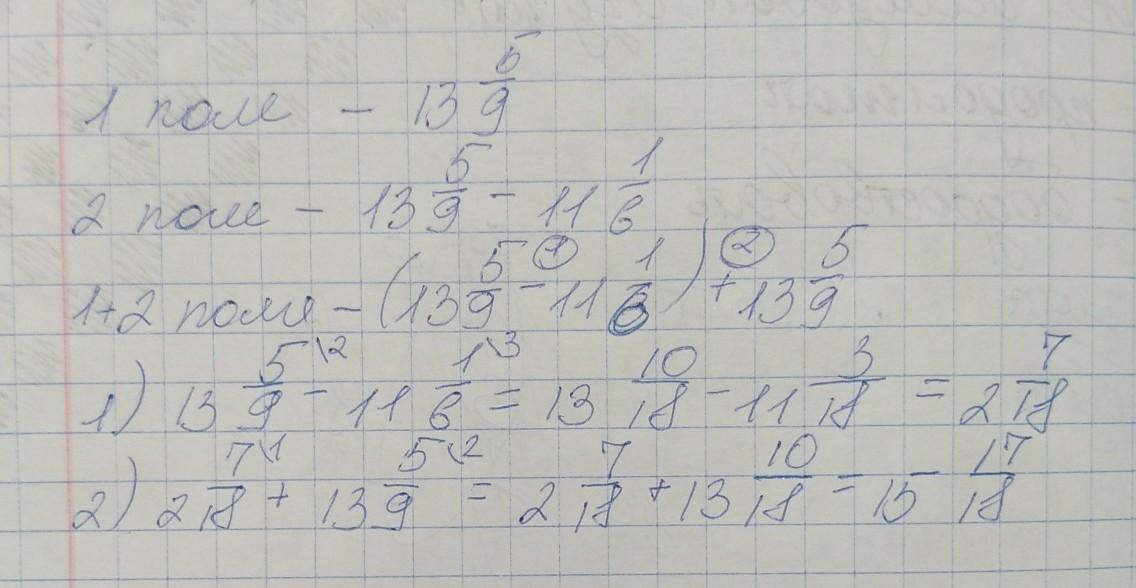 1 поле - 13 5/9
2 поле - 13 5/9 - 11 1/6
1+2 поля - (13 5/9 -① 11 1/6) +② 13 5/9
1) 13 5/9\2 - 11 1/6\3 = 13 10/18 - 11 3/18 = 2 7/18
2) 2 7/18\1 + 13 5/9\2 = 2 7/18 + 13 10/18 = 15 17/18